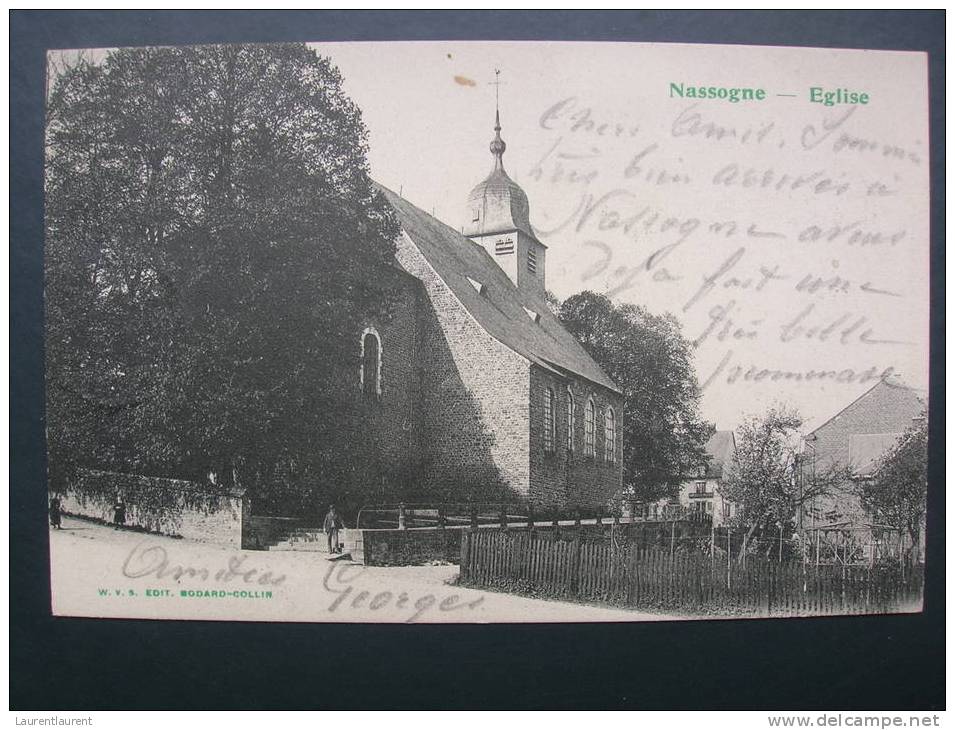 Nassogne — Eglise
Chers Amis, Sommes
très bien arrivés à
Nassogne avons
Déjà fait une
très belle
promenade
Amitiés
Georges
W. V. S. EDIT. BODARD-COLLIN
Laurentlaurent
www.delcampe.net